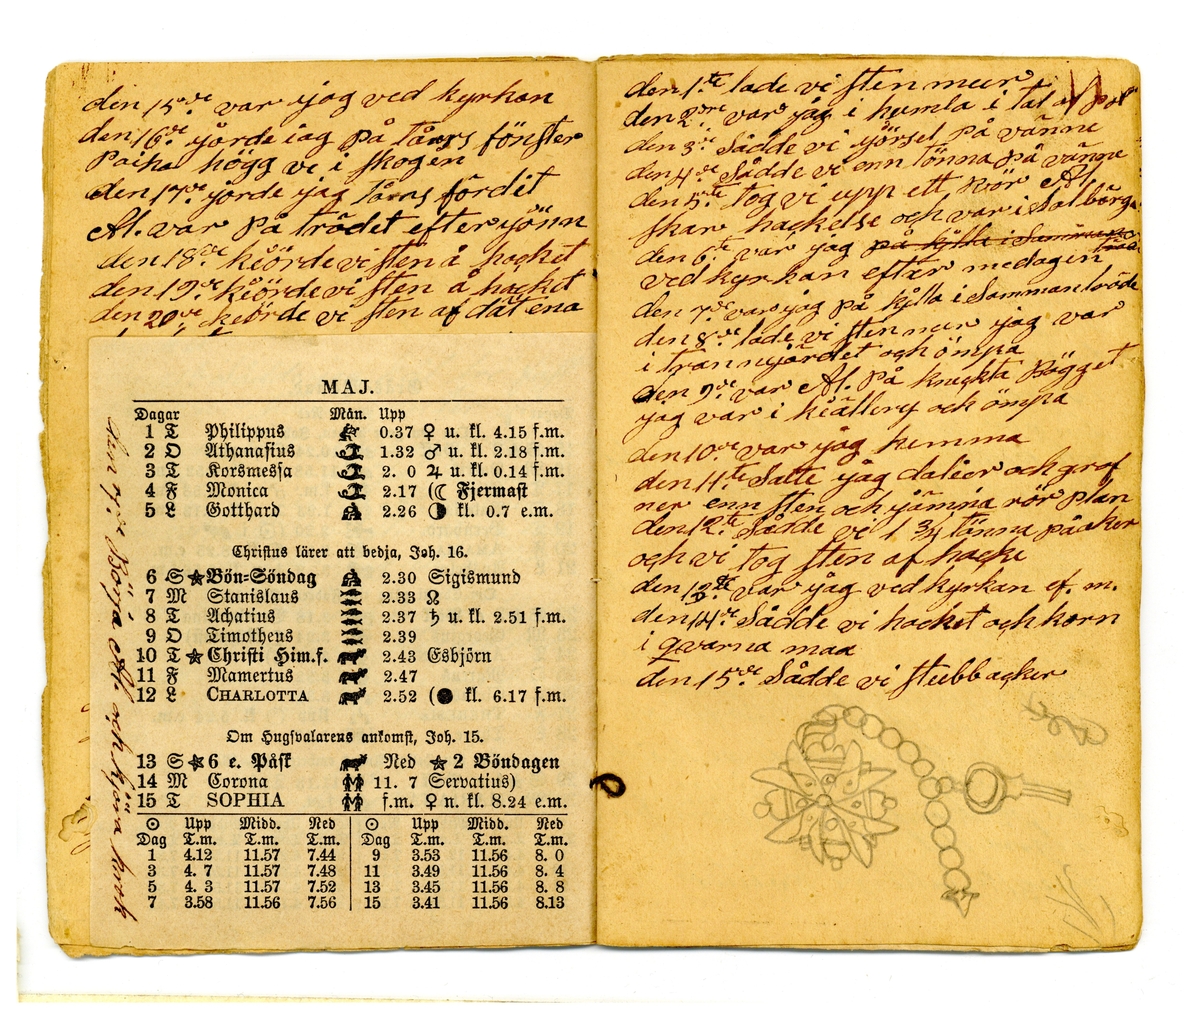 den 15de var jag ved kyrkan
den 16de jörde iag på tårs fönster
Paiha högg vi i skogen
den 17de jörde jag tårs fördit
Al. var på trådet efter jönn
den 18de kiörde vi sten å hacket
den 19de kiörde vi sten å hacket
den 20de kiörde vi sten af dät ena
MAJ.
Dagar Mån. Upp
1 T Philippus 0.37 ♀ u. kl. 4.15 f.m.
2 O Athanasius 1.32 ♂ u. kl. 2.18 f.m.
3 T Korsmessa 2. 0 ♃ u. kl. 0.14 f.m.
4 F Monica 2.17 (☾ Fjermast
5 L Gotthard 2.26 ◑ kl. 0.7 e.m.
Christus lärer att bedja, Joh. 16.
6 S ★ Bön-Söndag 2.30 Sigismund
7 M Stanislaus 2.33 ☊
8 T Achatius 2.37 ♄ u. kl. 2.51 f.m.
9 O Timotheus 2.39
10 T ★ Christi Him.f. 2.43 Esbjörn
11 F Mamertus 2.47
12 L CHARLOTTA 2.52 (● kl. 6.17 f.m.
Om Hugsvalarens ankomst, Joh. 15.
13 S ★ 6 e. Påsk Ned ★ 2 Böndagen
14 M Corona 11. 7 Servatius)
15 T SOPHIA f.m. ♀ n. kl. 8.24 e.m.
☉ Upp Midd. Ned ☉ Upp Midd. Ned
Dag T.m. T.m. T.m. Dag T.m. T.m. T.m.
1 4.12 11.57 7.44 9 3.53 11.56 8. 0
3 4. 7 11.57 7.48 11 3.49 11.56 8. 4
5 4. 3 11.57 7.52 13 3.45 11.56 8. 8
7 3.58 11.56 7.56 15 3.41 11.56 8.13
Börja Al. och kjöra
den 1ta lade vi sten mur
den 2dre var jag i humla i tal af
den 3de Sådde vi jörsel på vänne
den 4de Sådde vi enn tönna på vänne
den 5te tog vi upp ett Rör Al.
skar hackelse och var i Solbärga
den 6te var jag på kjlla i Samman
ved kyrkan efter medagin
den 7de var jag på kjlla i Sammantröde
den 8de lade vi sten mur jag var
i trannyördet och ömpa
den 9de var Al. på knekta Högget
jag var i kiällery och ömpa
den 10de var jag hemma
den 11te Satte jag dalier och grof
ner enn sten och jämna rör plan
den 12te Sådde vi 1 3/4 tänna på åker
och vi tog sten af hacke
den 13de var jag ved kyrkan ef. m.
den 14de Sådde vi hacket och korn
i qvarna maa
den 15de Sådde vi stubbacker